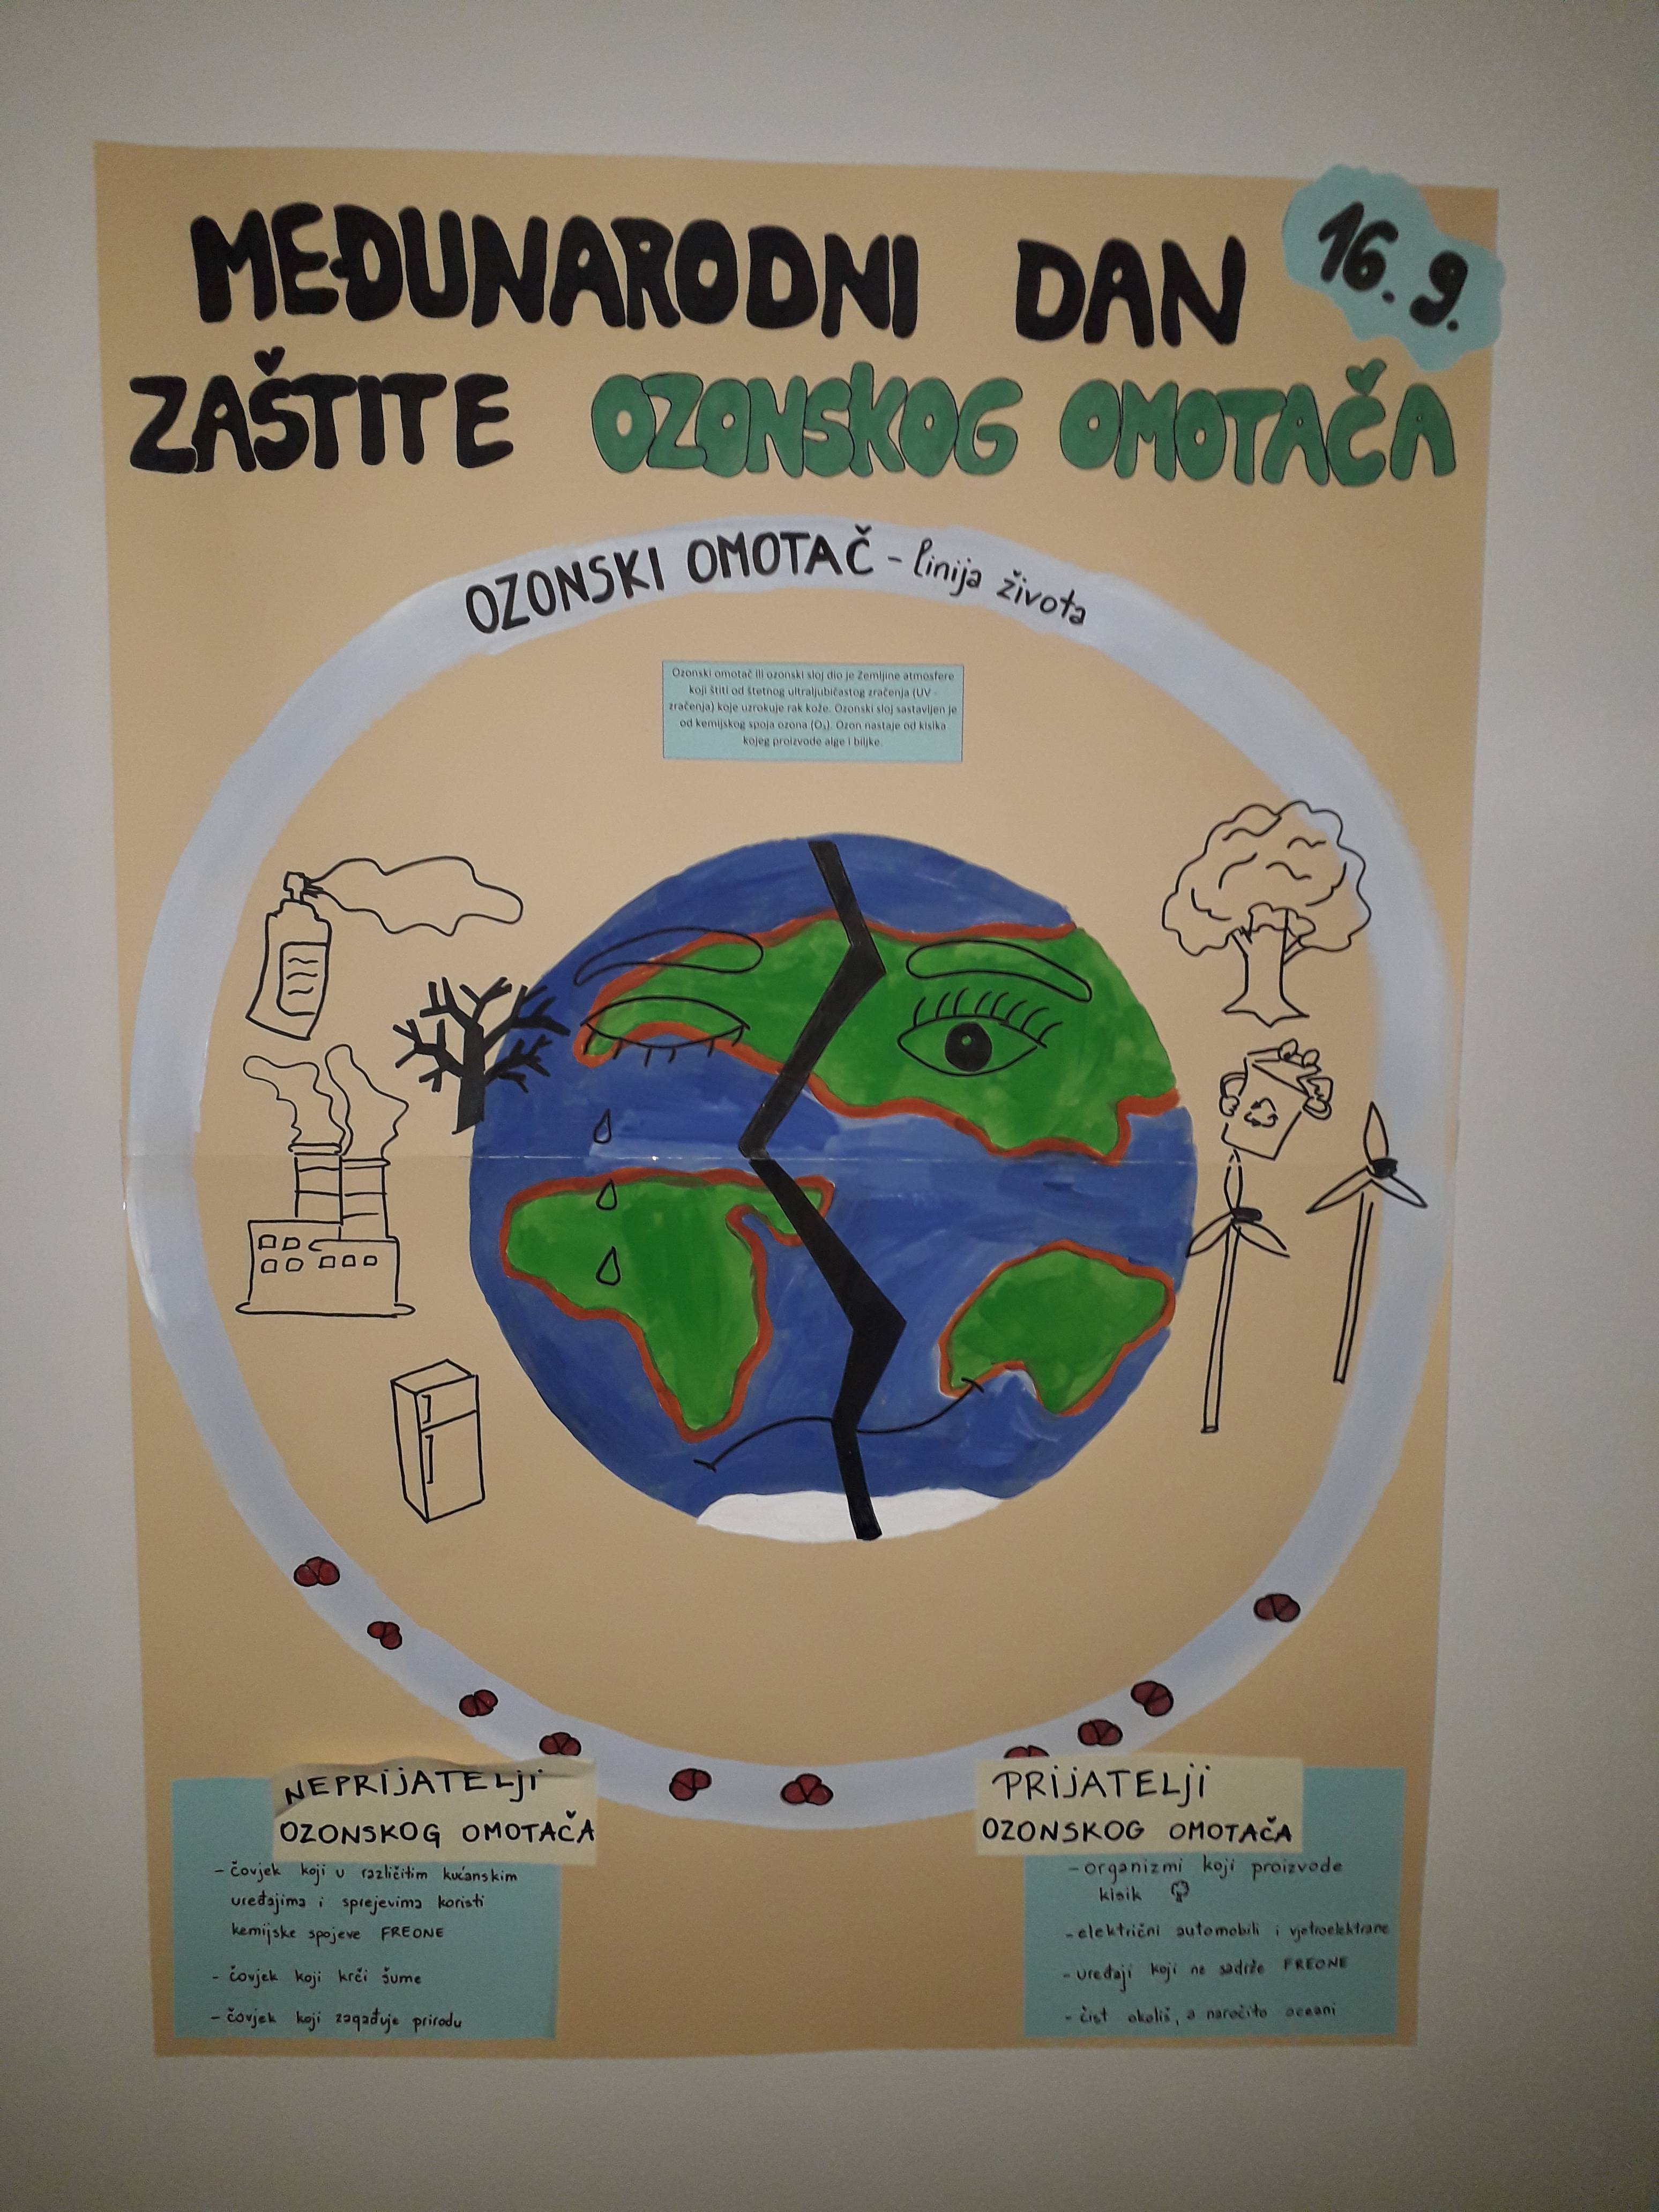 MEĐUNARODNI DAN
16. 9.
ZAŠTITE OZONSKOG OMOTAČA
OZONSKI OMOTAČ - linija života
Ozonski omotač ili ozonski sloj dio je Zemljine atmosfere
koji štiti od štetnog ultraljubičastog zračenja (UV -
zračenja) koje uzrokuje rak kože. Ozonski sloj sastavljen je
od kemijskog spoja ozona (O₃). Ozon nastaje od kisika
kojeg proizvode alge i biljke.
NEPRIJATELJI
OZONSKOG OMOTAČA
- čovjek koji u različitim kućanskim
uređajima i sprejevima koristi
kemijske spojeve FREONE
- čovjek koji krči šume
- čovjek koji zagađuje prirodu
PRIJATELJI
OZONSKOG OMOTAČA
- organizmi koji proizvode
kisik
- električni automobili i vjetroelektrane
- uređaji koji ne sadrže FREONE
- čist okoliš, a naročito oceani